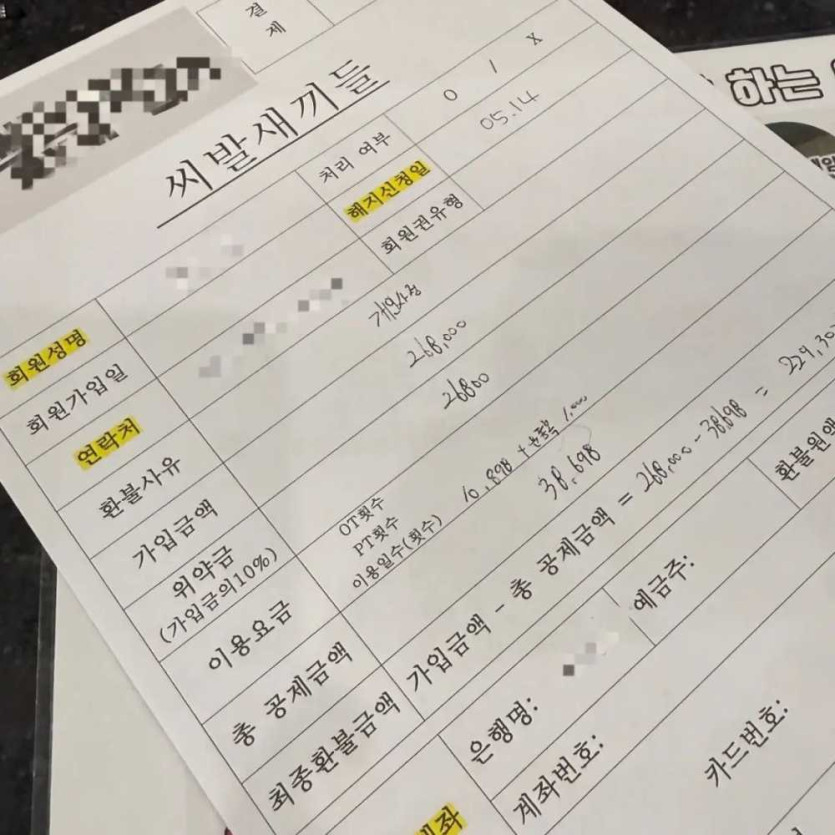 결제
하는
씨발새끼들
처리 여부 O / X
해지신청일 05.14
회원권유형
회원성명
회원가입일
연락처
환불사유 개인사정
가입금액 268,000
위약금 26800
(가입금의10%)
이용요금 OT횟수
PT횟수
이용일수(횟수) 10,898 + 1,000
총 공제금액 38,698
최종환불금액 가입금액 - 총 공제금액 = 268,000 - 38,698 = 229,30
환불원액
은행명: 예금주:
계좌번호:
카드번호:
계좌